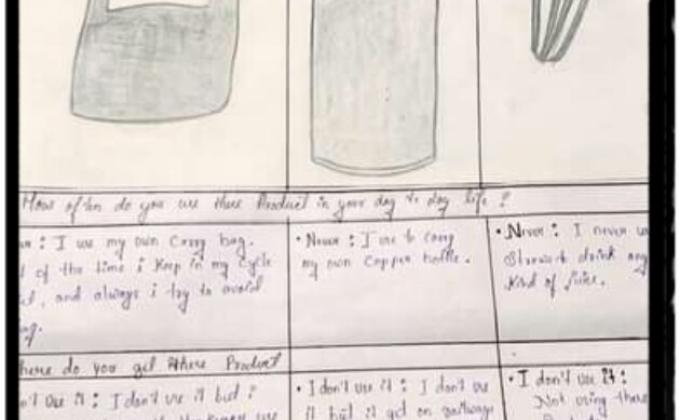 How often do you use these Product in your day to day life ?
: I use my own Carry bag.
of the time i Keep in my Cycle
, and always i try to avoid
• Never : I use to Carry
my own Copper bottle.
• Never : I never
drink any
Kind of juice.
here do you get these Product
use it : I don't use it but ?
• I don't use it : I don't use
it but it get on railways
• I don't use it :
Not using these